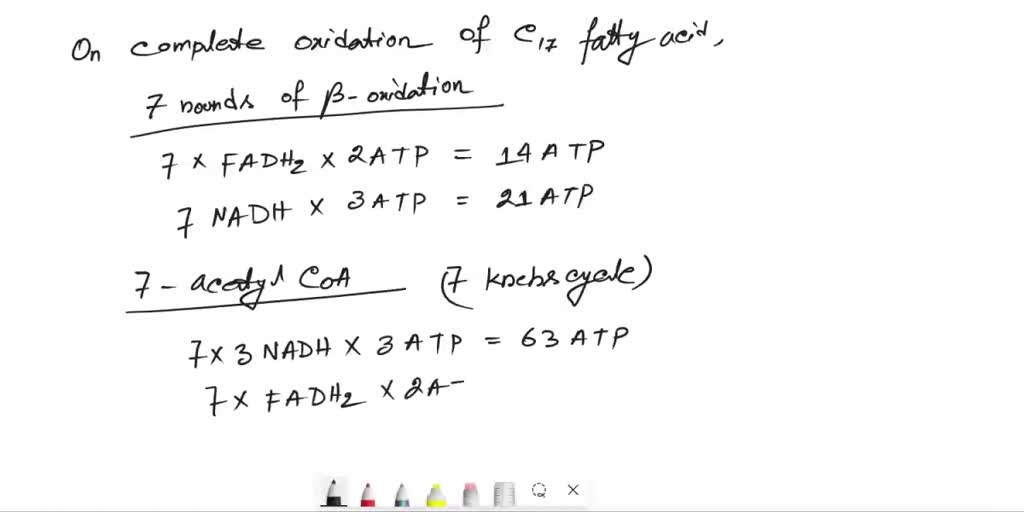 On complete oxidation of C17 fatty acid,
7 rounds of β-oxidation
7 × FADH2 × 2ATP = 14 ATP
7 NADH × 3 ATP = 21 ATP
7 - acetyl CoA (7 krebs cycle)
7 × 3 NADH × 3 ATP = 63 ATP
7 × FADH2 × 2A-